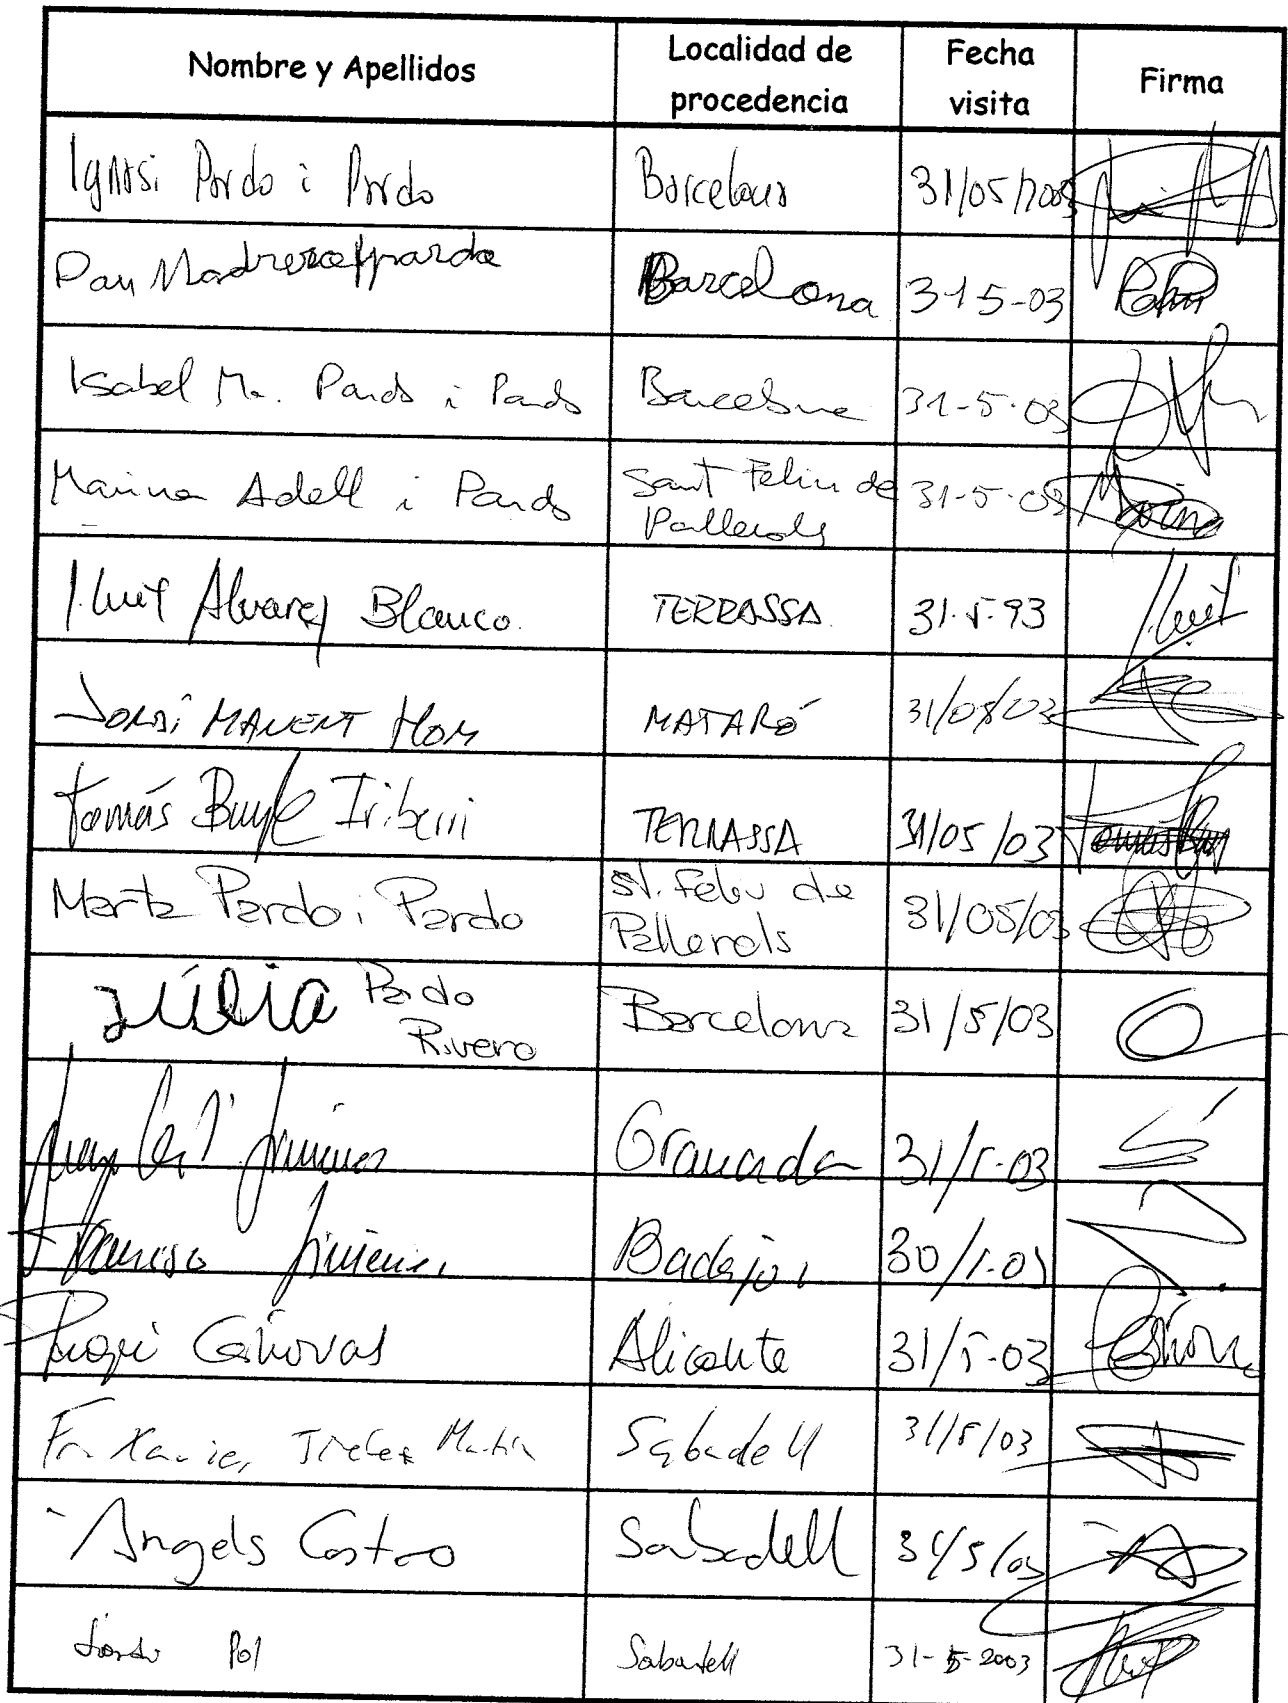 Nombre y Apellidos Localidad de procedencia Fecha visita Firma
Ignasi Pardo i Pardo Barcelona 31/05/2003
Pau Madrenas Pardo Barcelona 31-5-03 Pau
Isabel Mª. Pardo i Pardo Barcelona 31-5-03
Marina Adell i Pardo Sant Feliu de Pallerols 31-5-03 Marina
Lluit Alvarez Blanco. TERRASSA 31.5.93 Lluit
JORDI MANENT HOM MATARÓ 31/05/03
Tomás Buyle Iriberri TERRASSA 31/05/03
Marta Pardo i Pardo St. Feliu de Pallerols 31/05/03
JúLia Pardo Rivero Barcelona 31/5/03
Jiménez Granada 31/5-03
Francisco Jiménez Badajoz 30/5-03
Cánovas Alicante 31/5-03
Fr. Xavier Martín Sabadell 31/5/03
Àngels Castro Sabadell 31/5/03
Jordi Pol Sabadell 31-5-2003